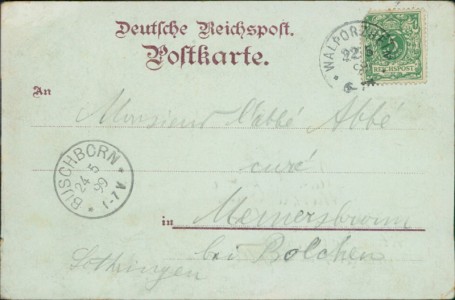 Deutsche Reichspost.
Postkarte.
WALPORZHEIM
22 5
REICHSPOST
An
Monsieur l'abbé Abbé
curé
BUSCHBORN
24 5 99
1-7 A
in Memersbronn
bei Bolchen
Lothringen